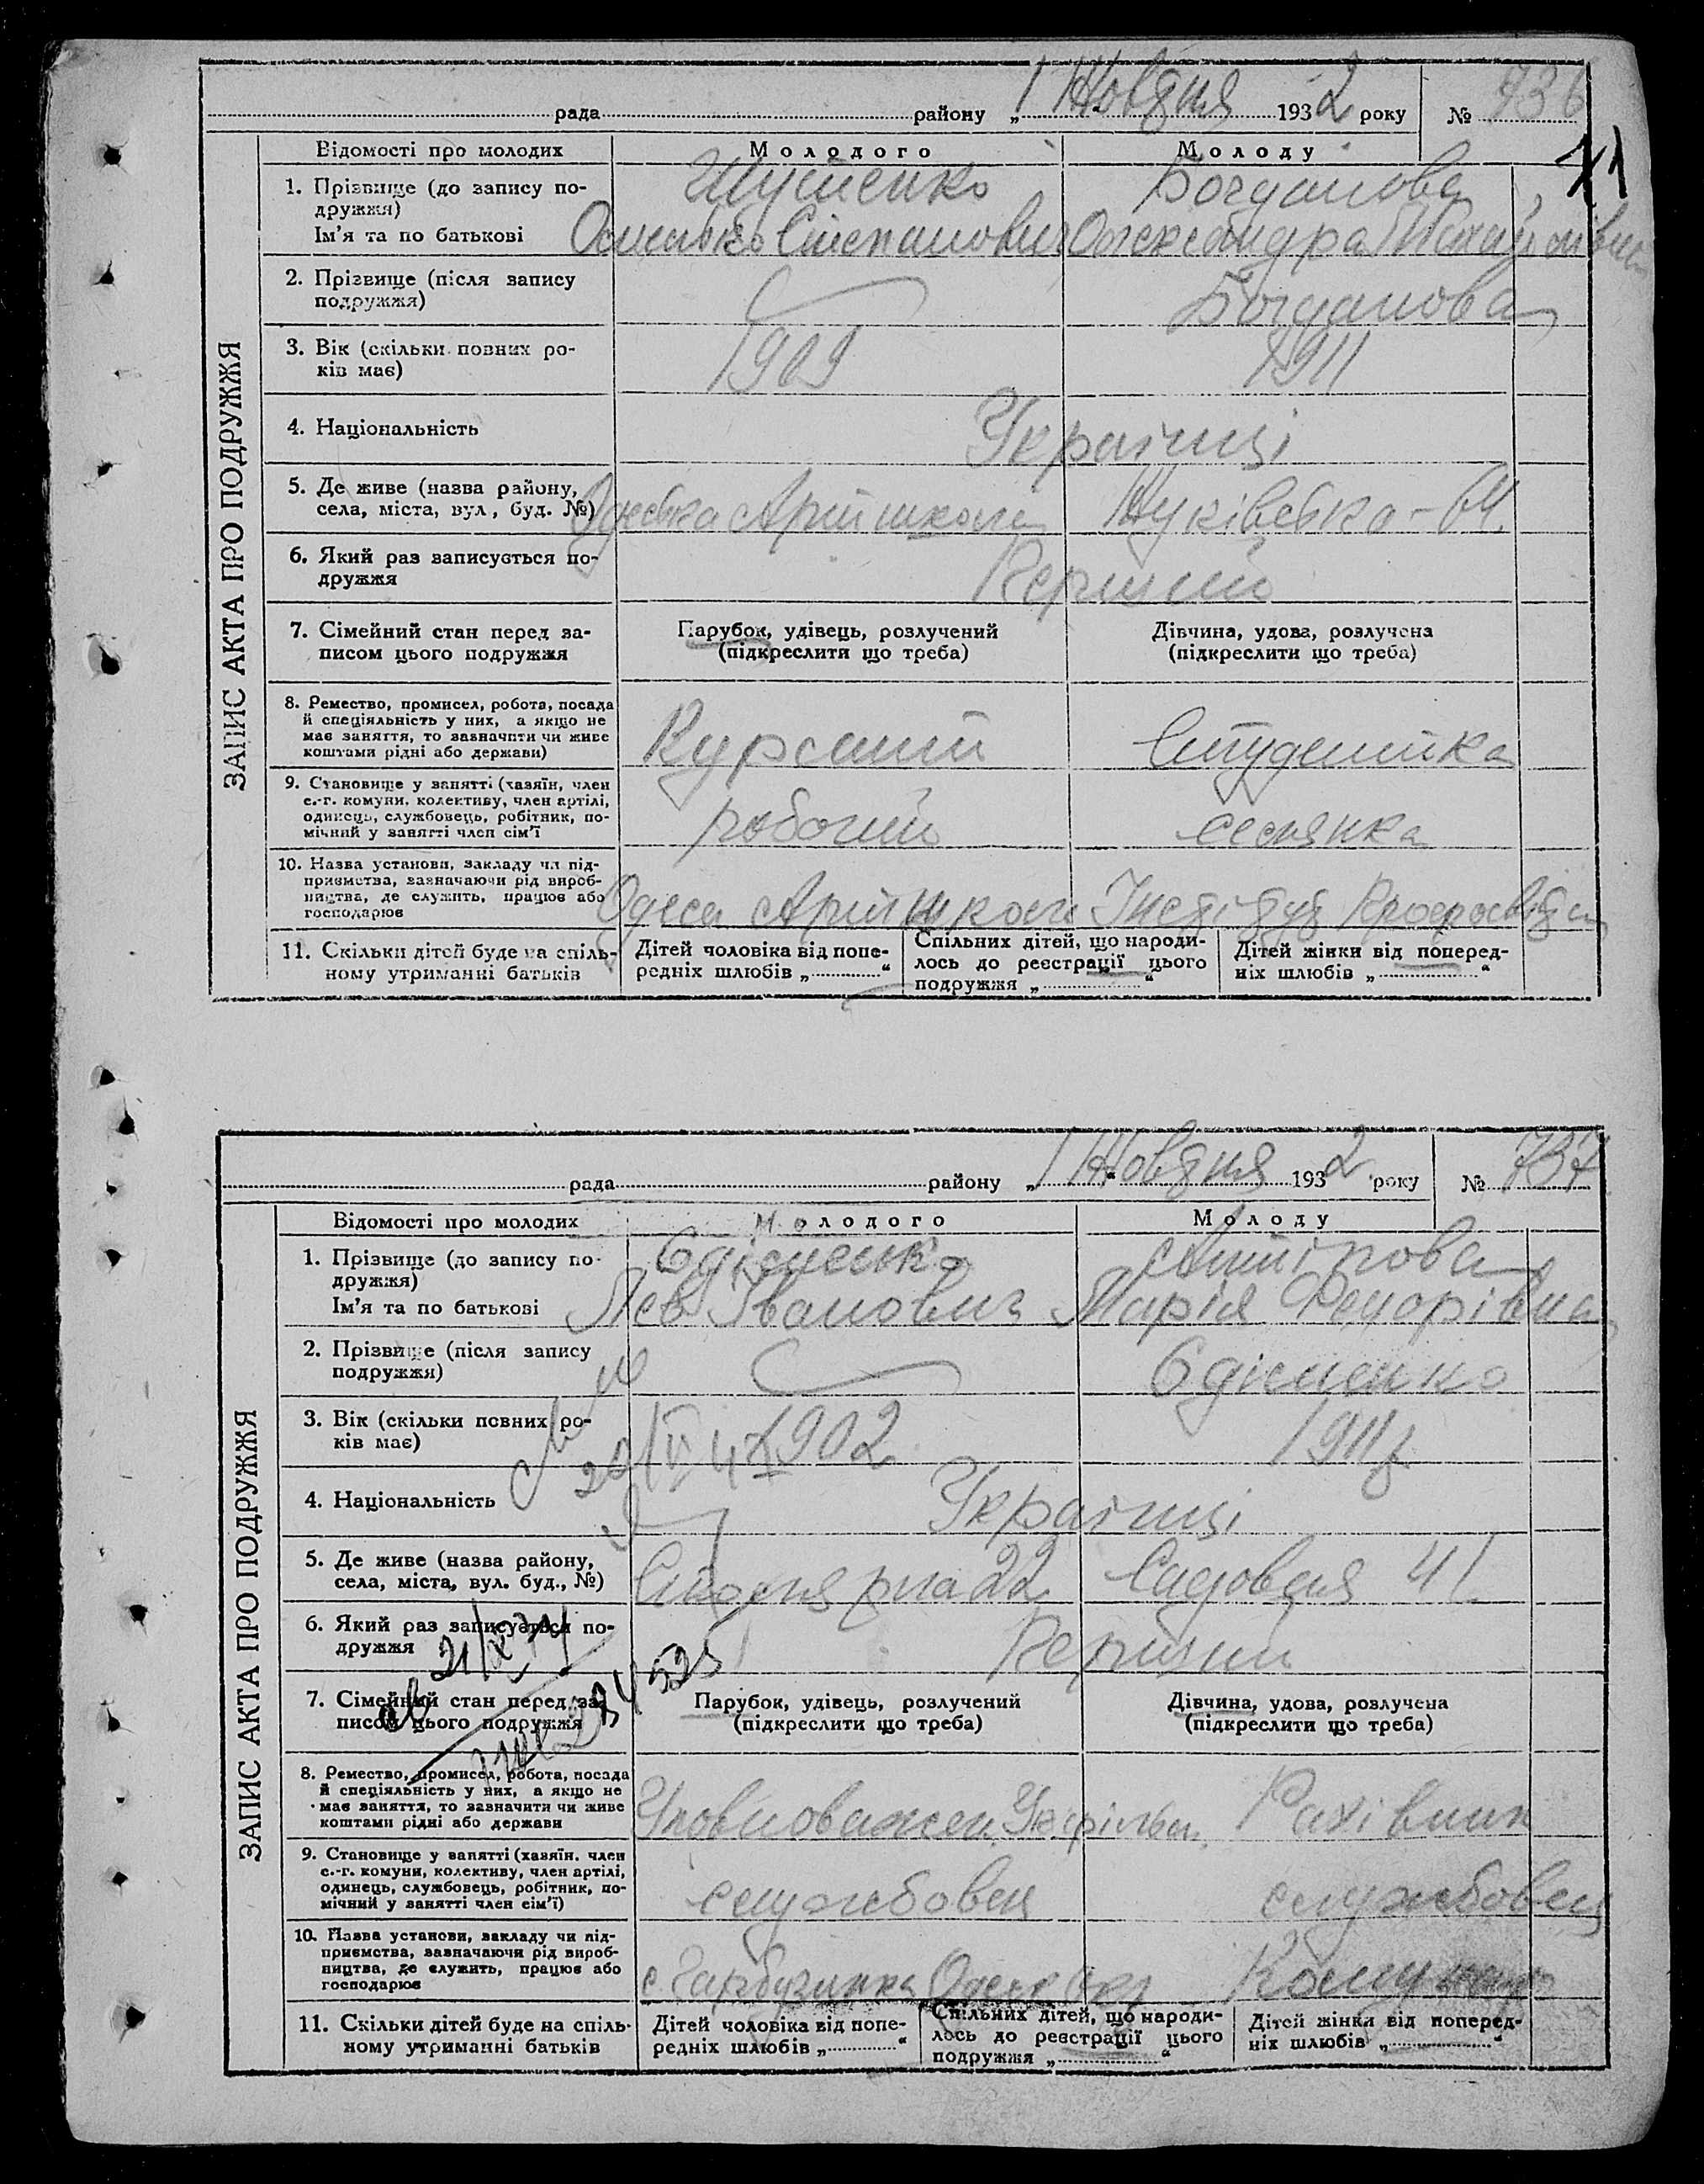 рада району „ 1 Жовтня 1932 року № 736
71
ЗАПИС АКТА ПРО ПОДРУЖЖЯ
Відомості про молодих Молодого Молоду
1. Прізвище (до запису по-
дружжя)
Богданова
Ім'я та по батькові
Степанович Олександра
2. Прізвище (після запису
подружжя)
Богданова
3. Вік (скільки повних ро-
ків має)
1909 1911
4. Національність
Українці
5. Де живе (назва району,
села, міста, вул., буд. №)
Одеська Арт школа
6. Який раз записується по-
дружжя
Перший
7. Сімейний стан перед за-
писом цього подружжя
Парубок, удівець, розлучений
(підкреслити що треба)
Дівчина, удова, розлучена
(підкреслити що треба)
8. Ремество, промисел, робота, посада
й спеціяльність у них, а якщо не
має заняття, то зазначити чи живе
коштами рідні або держави)
Курсант Студентка
9. Становище у занятті (хазяїн, член
с.-г. комуни, колективу, член артілі,
одинець, службовець, робітник, по-
мічний у занятті член сім'ї
робочий селянка
10. Назва установи, закладу чи під-
приємства, зазначаючи рід вироб-
ництва, де служить, працює або
господарює
Одеса Арт школа Інстітут
11. Скільки дітей буде на спіль-
ному утриманні батьків
Дітей чоловіка від попе-
редніх шлюбів „ “
Спільних дітей, що народи-
лось до реєстрації цього
подружжя „ “
Дітей жінки від поперед-
ніх шлюбів „ “
рада району „ 1 Жовтня 1932 року № 737
ЗАПИС АКТА ПРО ПОДРУЖЖЯ
Відомості про молодих Молодого Молоду
1. Прізвище (до запису по-
дружжя)
Антіпова
Ім'я та по батькові
Лев Іванович Марія Федорівна
2. Прізвище (після запису
подружжя)
3. Вік (скільки повних ро-
ків має)
1902 1911 р
4. Національність
Українці
5. Де живе (назва району,
села, міста, вул. буд., №)
Столярна 22 Садовая 41
6. Який раз записується по-
дружжя
Перший
7. Сімейний стан перед за-
писом цього подружжя
Парубок, удівець, розлучений
(підкреслити що треба)
Дівчина, удова, розлучена
(підкреслити що треба)
8. Ремество, промисел, робота, посада
й спеціяльність у них, а якщо не
має заняття, то зазначити чи живе
коштами рідні або держави
Уповноважен. Рахівник
9. Становище у занятті (хазяїн, член
с.-г. комуни, колективу, член артілі,
одинець, службовець, робітник, по-
мічний у занятті член сім'ї)
службовец службовец
10. Назва установи, закладу чи під-
приємства, зазначаючи рід вироб-
ництва, де служить, працює або
господарює
с. Гарбузинка Одеск
11. Скільки дітей буде на спіль-
ному утриманні батьків
Дітей чоловіка від попе-
редніх шлюбів „ “
Спільних дітей, що народи-
лось до реєстрації цього
подружжя „ “
Дітей жінки від поперед-
ніх шлюбів „ “